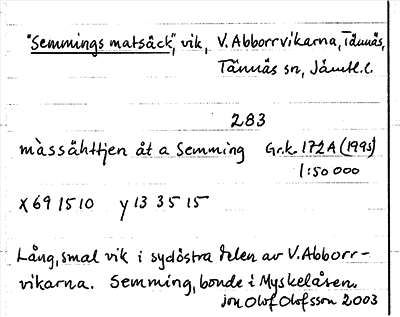 "Semmings matsäck", vik, V. Abborrvikarna, Tännäs,
Tännäs sn, Jämtl. l.
283
màssähttjen åt a Semming Gr.k. 172 A (1995)
1:50 000
x 69 15 10 y 13 35 15
Lång, smal vik i sydöstra delen av V. Abborr-
vikarna. Semming, bonde i Myskelåsen.
Jon Olof Olofsson 2003